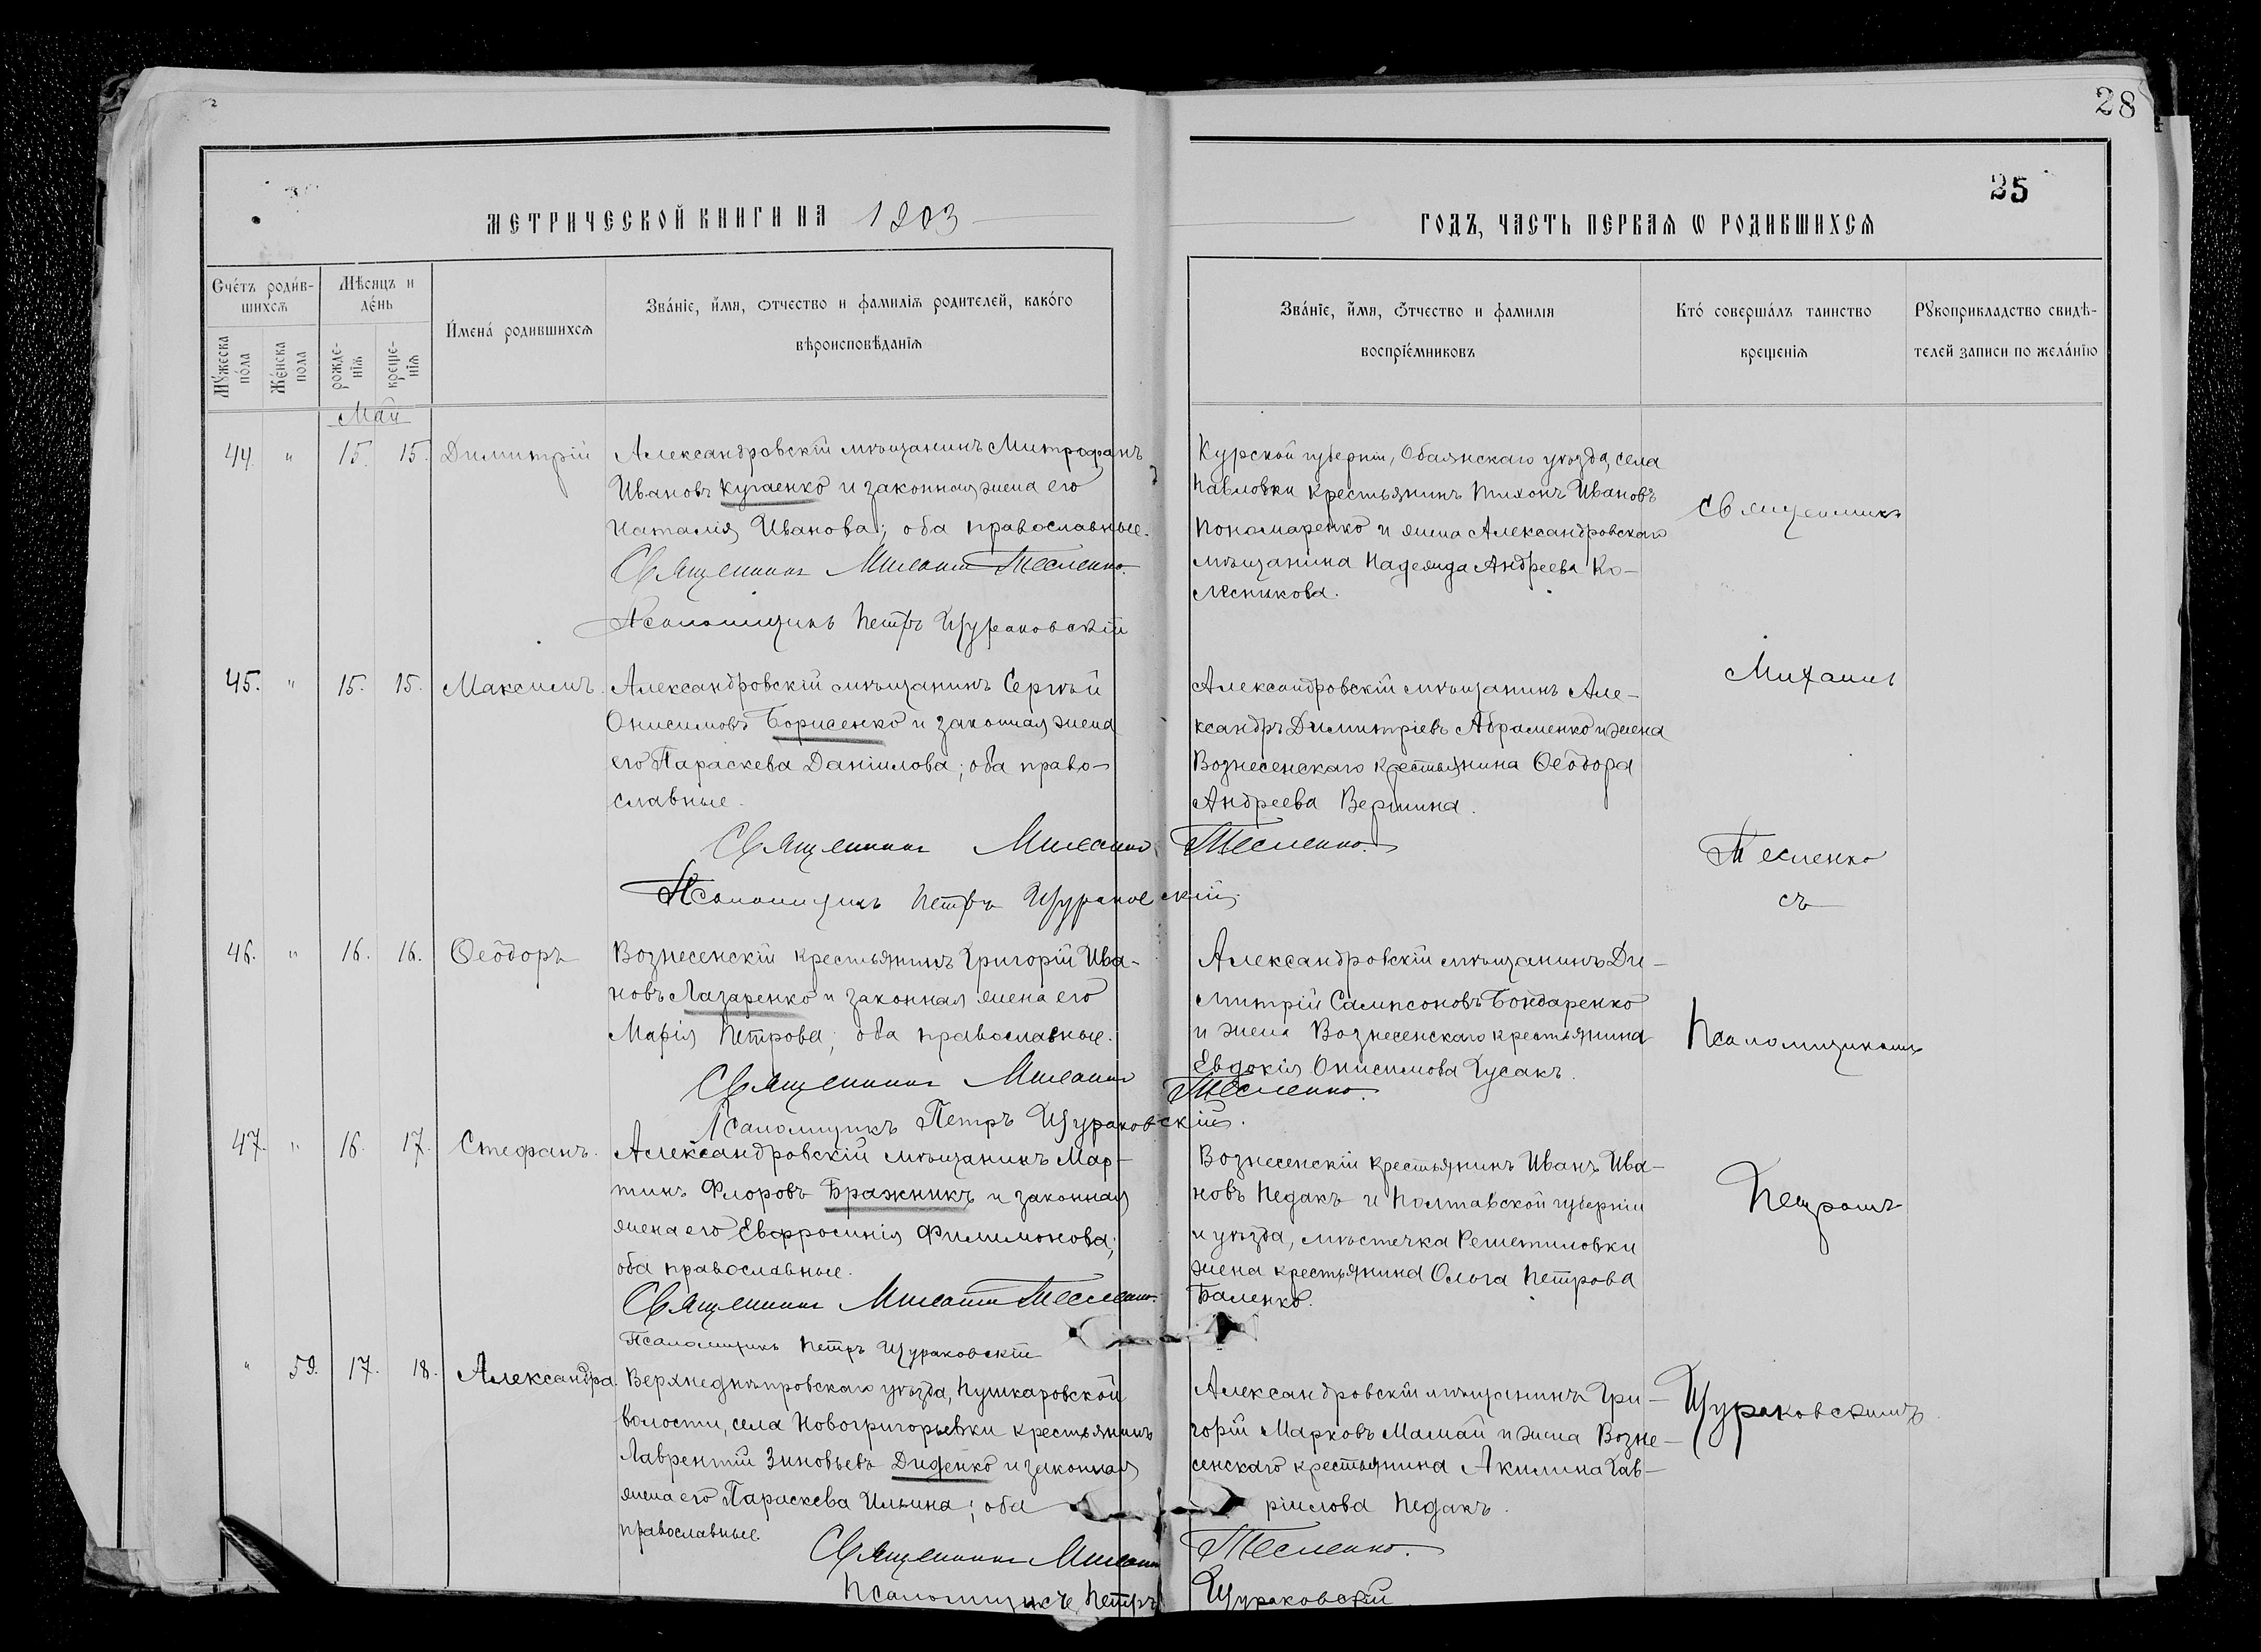 28
25
МЕТРИЧЕСКОЙ КНИГИ НА 1903
ГОДЪ, ЧАСТЬ ПЕРВАЯ Ѡ РОДИВШИХСЯ
Счётъ роди́в-
шихся
Мѣсяцъ и
де́нь
И́мена́ родившихся
Зва́нїе, и́мя, ѻтчество и фамилїя родителей, како́го
вѣроисповѣданїя
Мꙋ́жеска
по́ла
Же́нска
пола
рожде-
нїя
креще-
нїя
Зва́нїе, и́мя, ѻ́тчество и фамилїя
воспрїе́мниковъ
Кто́ соверша́лъ таинство
крещенїя
Рꙋкоприкладство свидѣ-
телей записи по жела́нїю
Май
44. " 15. 15. Димитрій
Александровскій мѣщанинъ Митрофанъ
Ивановъ Кугаенко и законная жена его
Наталія Иванова; оба православные.
Священникъ Михаилъ Тесленко.
Псаломщикъ Петръ Щураковскій
Курской губерніи, Обаянскаго уѣзда, села
Павловки крестьянинъ Тихонъ Ивановъ
Пономаренко и жена Александровскаго
мѣщанина Надежда Андреева Ко-
лесникова.
45. " 15. 15. Максимъ.
Александровскій мѣщанинъ Сергѣй
Онисимовъ Борисенко и законная жена
его Параскева Даніилова; оба право-
славные.
Священникъ Михаилъ Тесленко.
Псаломщикъ Петръ Щураковскій.
Александровскій мѣщанинъ Але-
ксандръ Димитріевъ Абраменко и жена
Вознесенскаго крестьянина Ѳеодора
Андреева Вершина.
46. " 16. 16. Ѳеодоръ
Вознесенскій крестьянинъ Григорій Ива-
новъ Лазаренко и законная жена его
Марія Петрова; оба православные.
Священникъ Михаилъ Тесленко.
Псаломщикъ Петръ Щураковскій.
Александровскій мѣщанинъ Ди-
митрій Сампсоновъ Бондаренко
и жена Вознесенскаго крестьянина
Евдокія Онисимова Гусакъ.
47. " 16. 17. Стефанъ.
Александровскій мѣщанинъ Мар-
тинъ Флоровъ Бражникъ и законная
жена его Евфросинія Филимонова;
оба православные.
Священникъ Михаилъ Тесленко.
Псаломщикъ Петръ Щураковскій
Вознесенскій крестьянинъ Иванъ Ива-
новъ Педакъ и Полтавской губерніи
и уѣзда, мѣстечка Решетиловки
жена крестьянина Ольга Петрова
Баленко.
" 59. 17. 18. Александра.
Верхнеднѣпровскаго уѣзда, Пушкаровской
волости, села Новогригорьевки крестьянинъ
Лаврентій Зиновьевъ Диденко и законная
жена его Параскева Ильина; оба
православные.
Священникъ Михаилъ Тесленко.
Псаломщикъ Петръ Щураковскій
Александровскій мѣщанинъ Гри-
горій Марковъ Мамай и жена Возне-
сенскаго крестьянина Акилина Гав-
ріилова Педакъ.
Священникъ
Михаилъ
Тесленко
съ
Псаломщикомъ
Петромъ
Щураковскимъ.